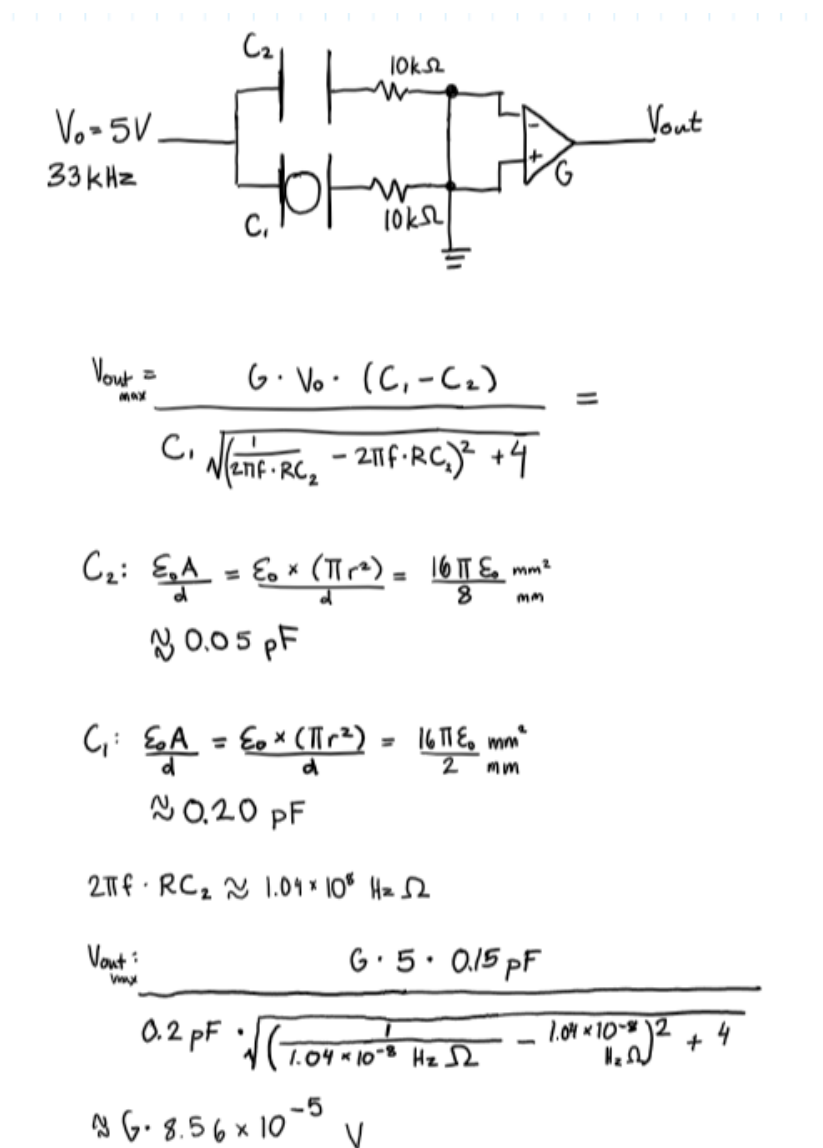 C₂
10kΩ
V₀=5V
33kHz
Vout
-
+
G
C₁
10kΩ
Vout max = G · V₀ · (C₁ - C₂) / C₁ √((1 / 2πf·RC₂ - 2πf·RC₂)² + 4) =
C₂: ε₀A / d = ε₀ × (πr²) / d = 16πε₀ / 8 mm² / mm
≈ 0.05 pF
C₁: ε₀A / d = ε₀ × (πr²) / d = 16πε₀ / 2 mm² / mm
≈ 0.20 pF
2πf · RC₂ ≈ 1.04 × 10⁸ Hz Ω
Vout max: G · 5 · 0.15 pF / 0.2 pF · √((1 / 1.04 × 10⁻⁸ Hz Ω - 1.04 × 10⁻⁸ Hz Ω)² + 4)
≈ G · 8.56 × 10⁻⁵ V